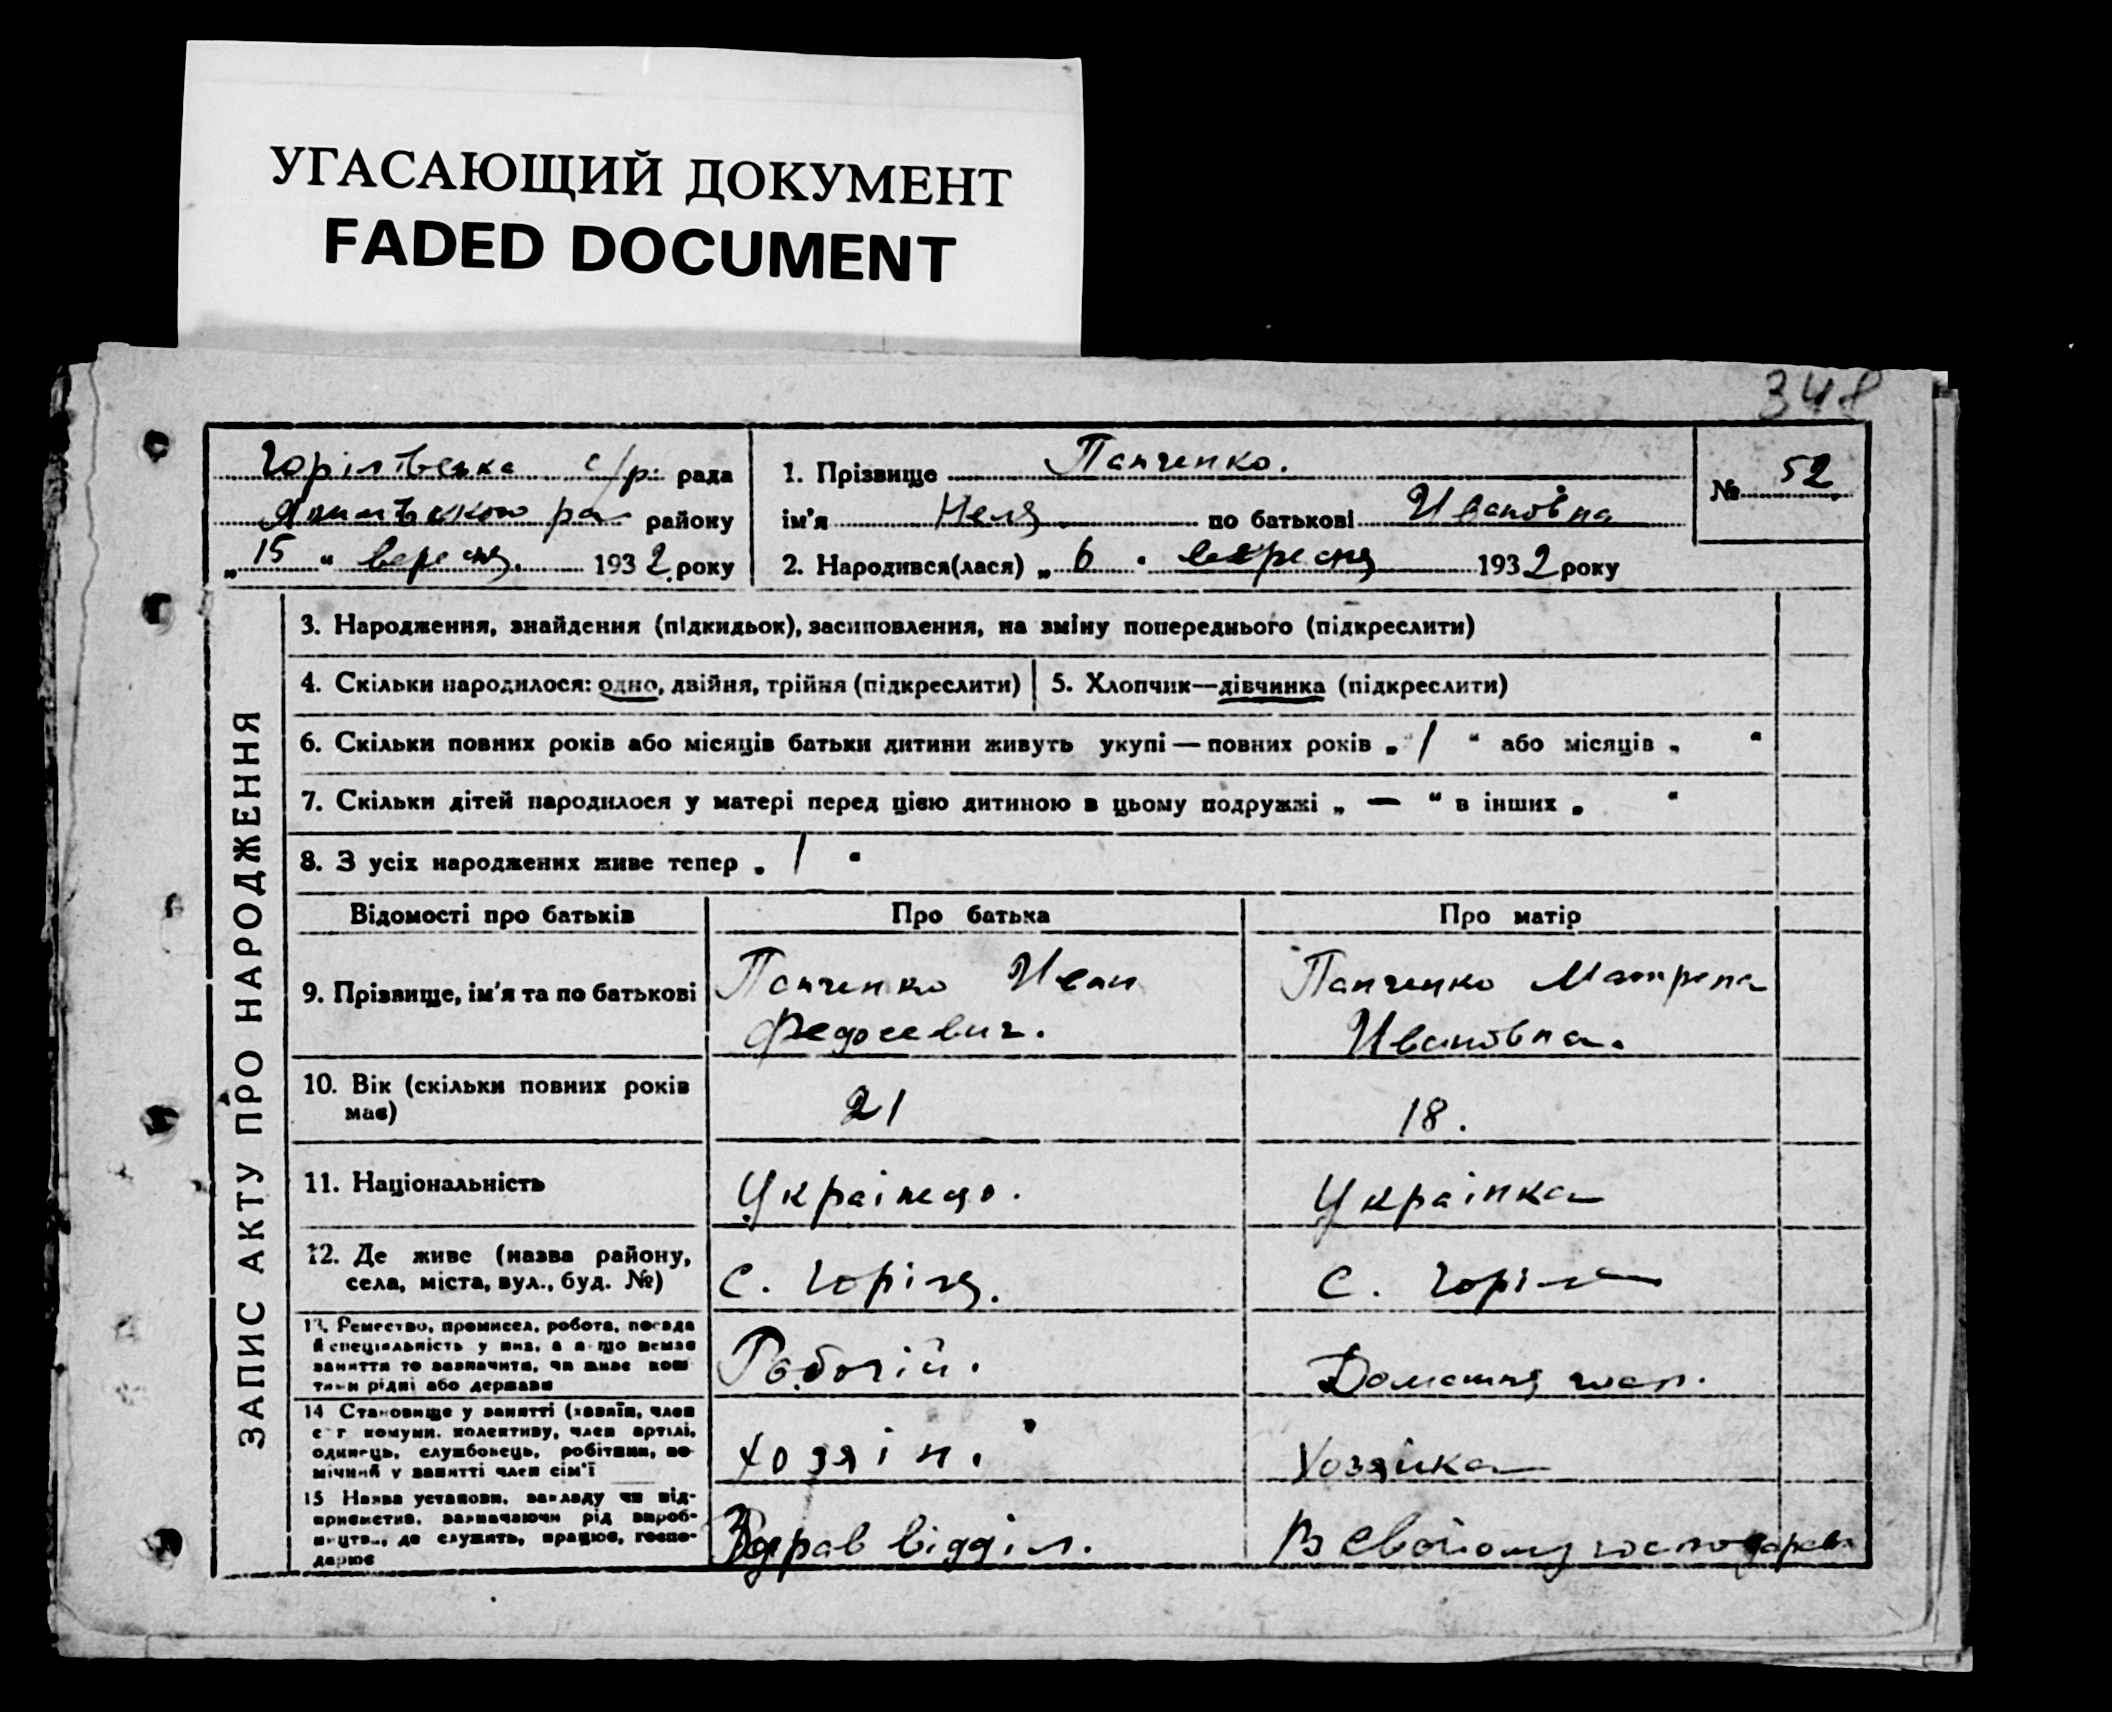 УГАСАЮЩИЙ ДОКУМЕНТ
FADED DOCUMENT
348
с/р. рада
району
„ 15 “ вересня. 1932 року
1. Прізвище Панченко.
ім'я Неля по батькові Ивановна
2. Народився(лася) „ 6 “ вересня 1932 року
№ 52
ЗАПИС АКТУ ПРО НАРОДЖЕННЯ
3. Народження, знайдення (підкидьок), засиновлення, на зміну попереднього (підкреслити)
4. Скільки народилося: одно, двійня, трійня (підкреслити)
5. Хлопчик—дівчинка (підкреслити)
6. Скільки повних років або місяців батьки дитини живуть укупі — повних років „ 1 “ або місяців „ “
7. Скільки дітей народилося у матері перед цією дитиною в цьому подружжі „ — “ в інших „ “
8. З усіх народжених живе тепер „ 1 “
Відомості про батьків
Про батька
Про матір
9. Прізвище, ім'я та по батькові
Панченко Иван
Федосеевич.
Панченко Матрена
Ивановна.
10. Вік (скільки повних років
має)
21
18.
11. Національність
Українець.
Українка
12. Де живе (назва району,
села, міста, вул., буд. №)
с. Горіла.
с. Горіла
13. Ремество, промисел, робота, посада
й спеціяльність у них, а якщо немає
заняття то зазначити, чи живе кош
тами рідні або держави
Робочій.
Домашня госп.
14 Становище у занятті (хазяїн, член
с г комуни, колективу, член артілі,
одинець, службовець, робітник, по
мічний у занятті член сім'ї
Хозяін.
Хозяйка
15 Назва установи, закладу чи під-
приємства, зазначаючи рід вироб-
ництва, де служить, працює, госпо-
дарює
Здрав відділ.
В свойому господарстві